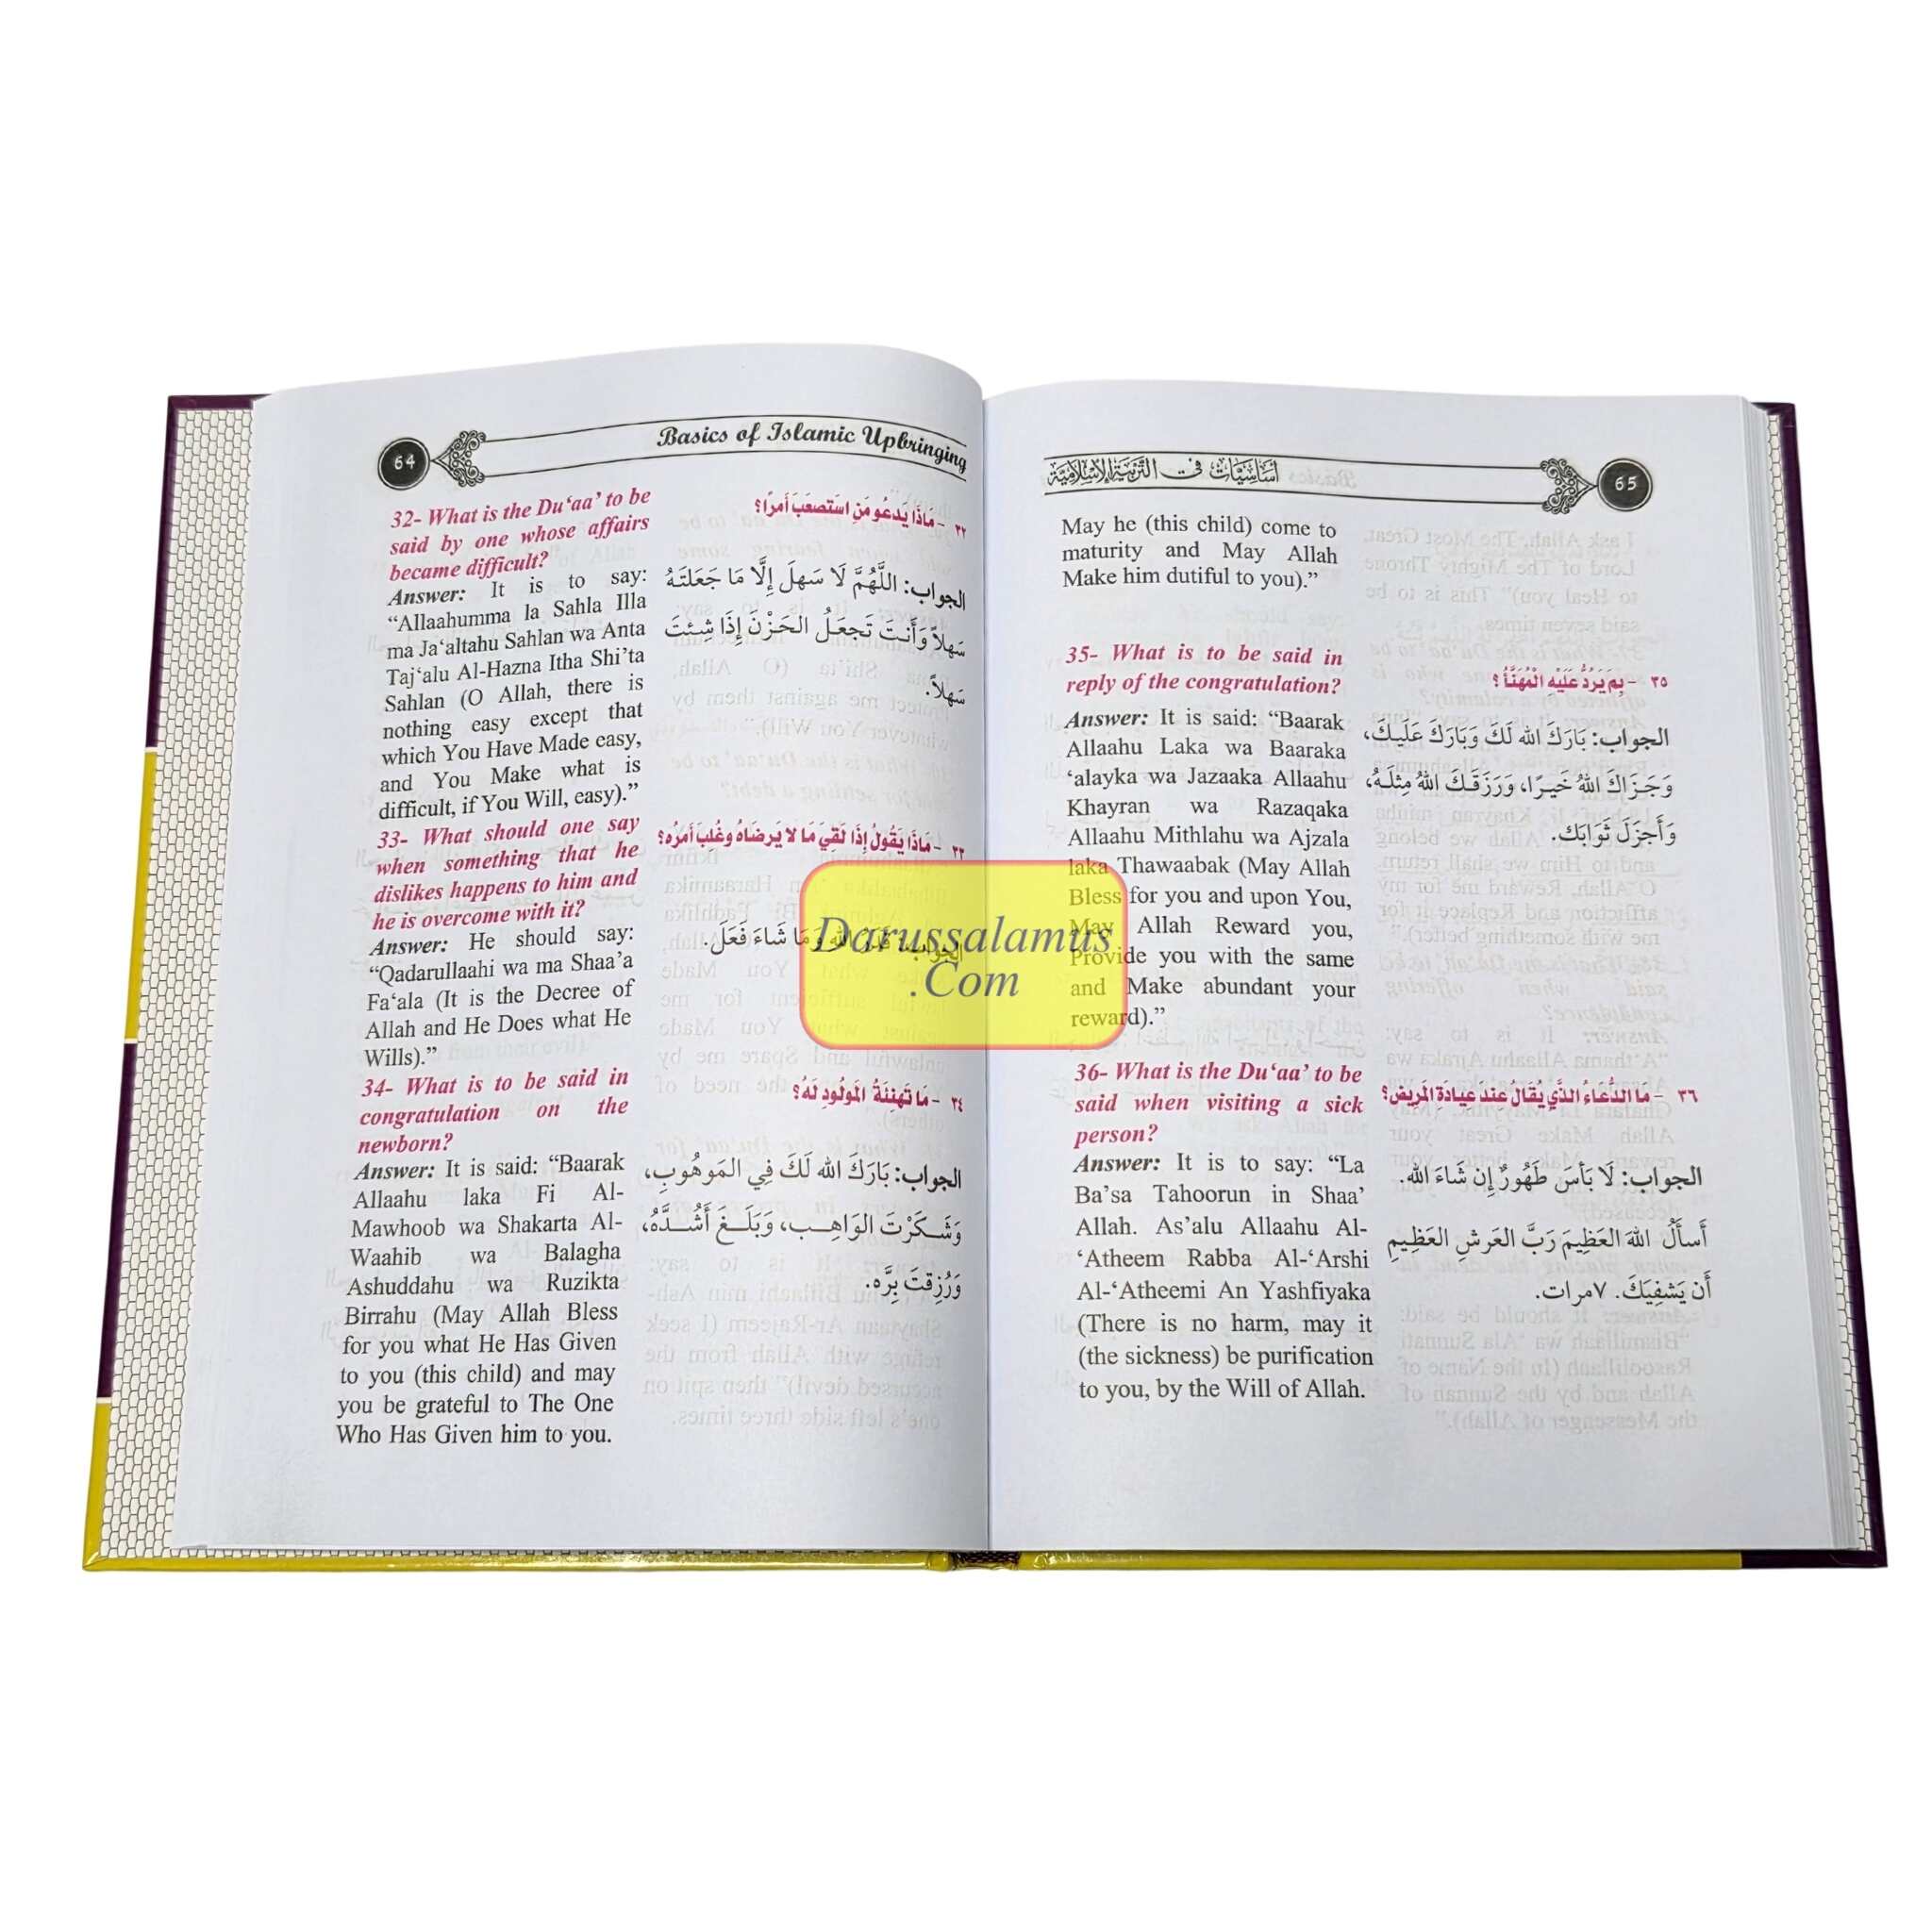 64
Basics of Islamic Upbringing
32- What is the Du‘aa’ to be
said by one whose affairs
became difficult?
Answer: It is to say:
“Allaahumma la Sahla Illa
ma Ja‘altahu Sahlan wa Anta
Taj‘alu Al-Hazna Itha Shi’ta
Sahlan (O Allah, there is
nothing easy except that
which You Have Made easy,
and You Make what is
difficult, if You Will, easy).”
33- What should one say
when something that he
dislikes happens to him and
he is overcome with it?
Answer: He should say:
“Qadarullaahi wa ma Shaa’a
Fa‘ala (It is the Decree of
Allah and He Does what He
Wills).”
34- What is to be said in
congratulation on the
newborn?
Answer: It is said: “Baarak
Allaahu laka Fi Al-
Mawhoob wa Shakarta Al-
Waahib wa Balagha
Ashuddahu wa Ruzikta
Birrahu (May Allah Bless
for you what He Has Given
to you (this child) and may
you be grateful to The One
Who Has Given him to you.
٣٢ - مَاذَا يَدعُو مَنِ استَصعَبَ أمرًا؟
الجواب: اللَّهُمَّ لَا سَهلَ إِلَّا مَا جَعَلتَهُ
سَهلاً وَأَنتَ تَجعَلُ الحَزْنَ إِذَا شِئتَ
سَهلاً.
٣٣ - مَاذَا يَقُولُ إِذَا لَقِيَ مَا لا يَرضَاهُ وغُلِبَ أمرُه؟
الجواب: قَدَرُ الله وَمَا شَاءَ فَعَلَ.
٣٤ - مَا تَهنِئَةُ المَولُودِ لَهُ؟
الجواب: بَارَكَ الله لَكَ فِي المَوهُوبِ،
وَشَكَرْتَ الوَاهِب، وَبَلَغَ أَشُدَّهُ،
وَرُزِقتَ بِرَّه.
Darussalamus
.Com
أساسيات في التربية الإسلامية
65
May he (this child) come to
maturity and May Allah
Make him dutiful to you).”
35- What is to be said in
reply of the congratulation?
Answer: It is said: “Baarak
Allaahu Laka wa Baaraka
‘alayka wa Jazaaka Allaahu
Khayran wa Razaqaka
Allaahu Mithlahu wa Ajzala
laka Thawaabak (May Allah
Bless for you and upon You,
May Allah Reward you,
Provide you with the same
and Make abundant your
reward).”
36- What is the Du‘aa’ to be
said when visiting a sick
person?
Answer: It is to say: “La
Ba’sa Tahoorun in Shaa’
Allah. As’alu Allaahu Al-
‘Atheem Rabba Al-‘Arshi
Al-‘Atheemi An Yashfiyaka
(There is no harm, may it
(the sickness) be purification
to you, by the Will of Allah.
٣٥ - بِمَ يَرُدُّ عَلَيْهِ الْمُهَنَّأُ؟
الجواب: بَارَكَ الله لَكَ وَبَارَكَ عَلَيكَ،
وَجَزَاكَ اللهُ خَيرًا، وَرَزَقَكَ اللهُ مِثلَهُ،
وَأَجزَلَ ثَوَابَك.
٣٦ - مَا الدُّعَاءُ الذَّي يُقَالُ عِندَ عِيادَةِ المَرِيض؟
الجواب: لَا بَأسَ طَهُورٌ إِن شَاءَ الله.
أَسأَلُ اللهَ العَظِيمَ رَبَّ العَرشِ العَظِيمِ
أَن يَشفِيَكَ. ٧مرات.